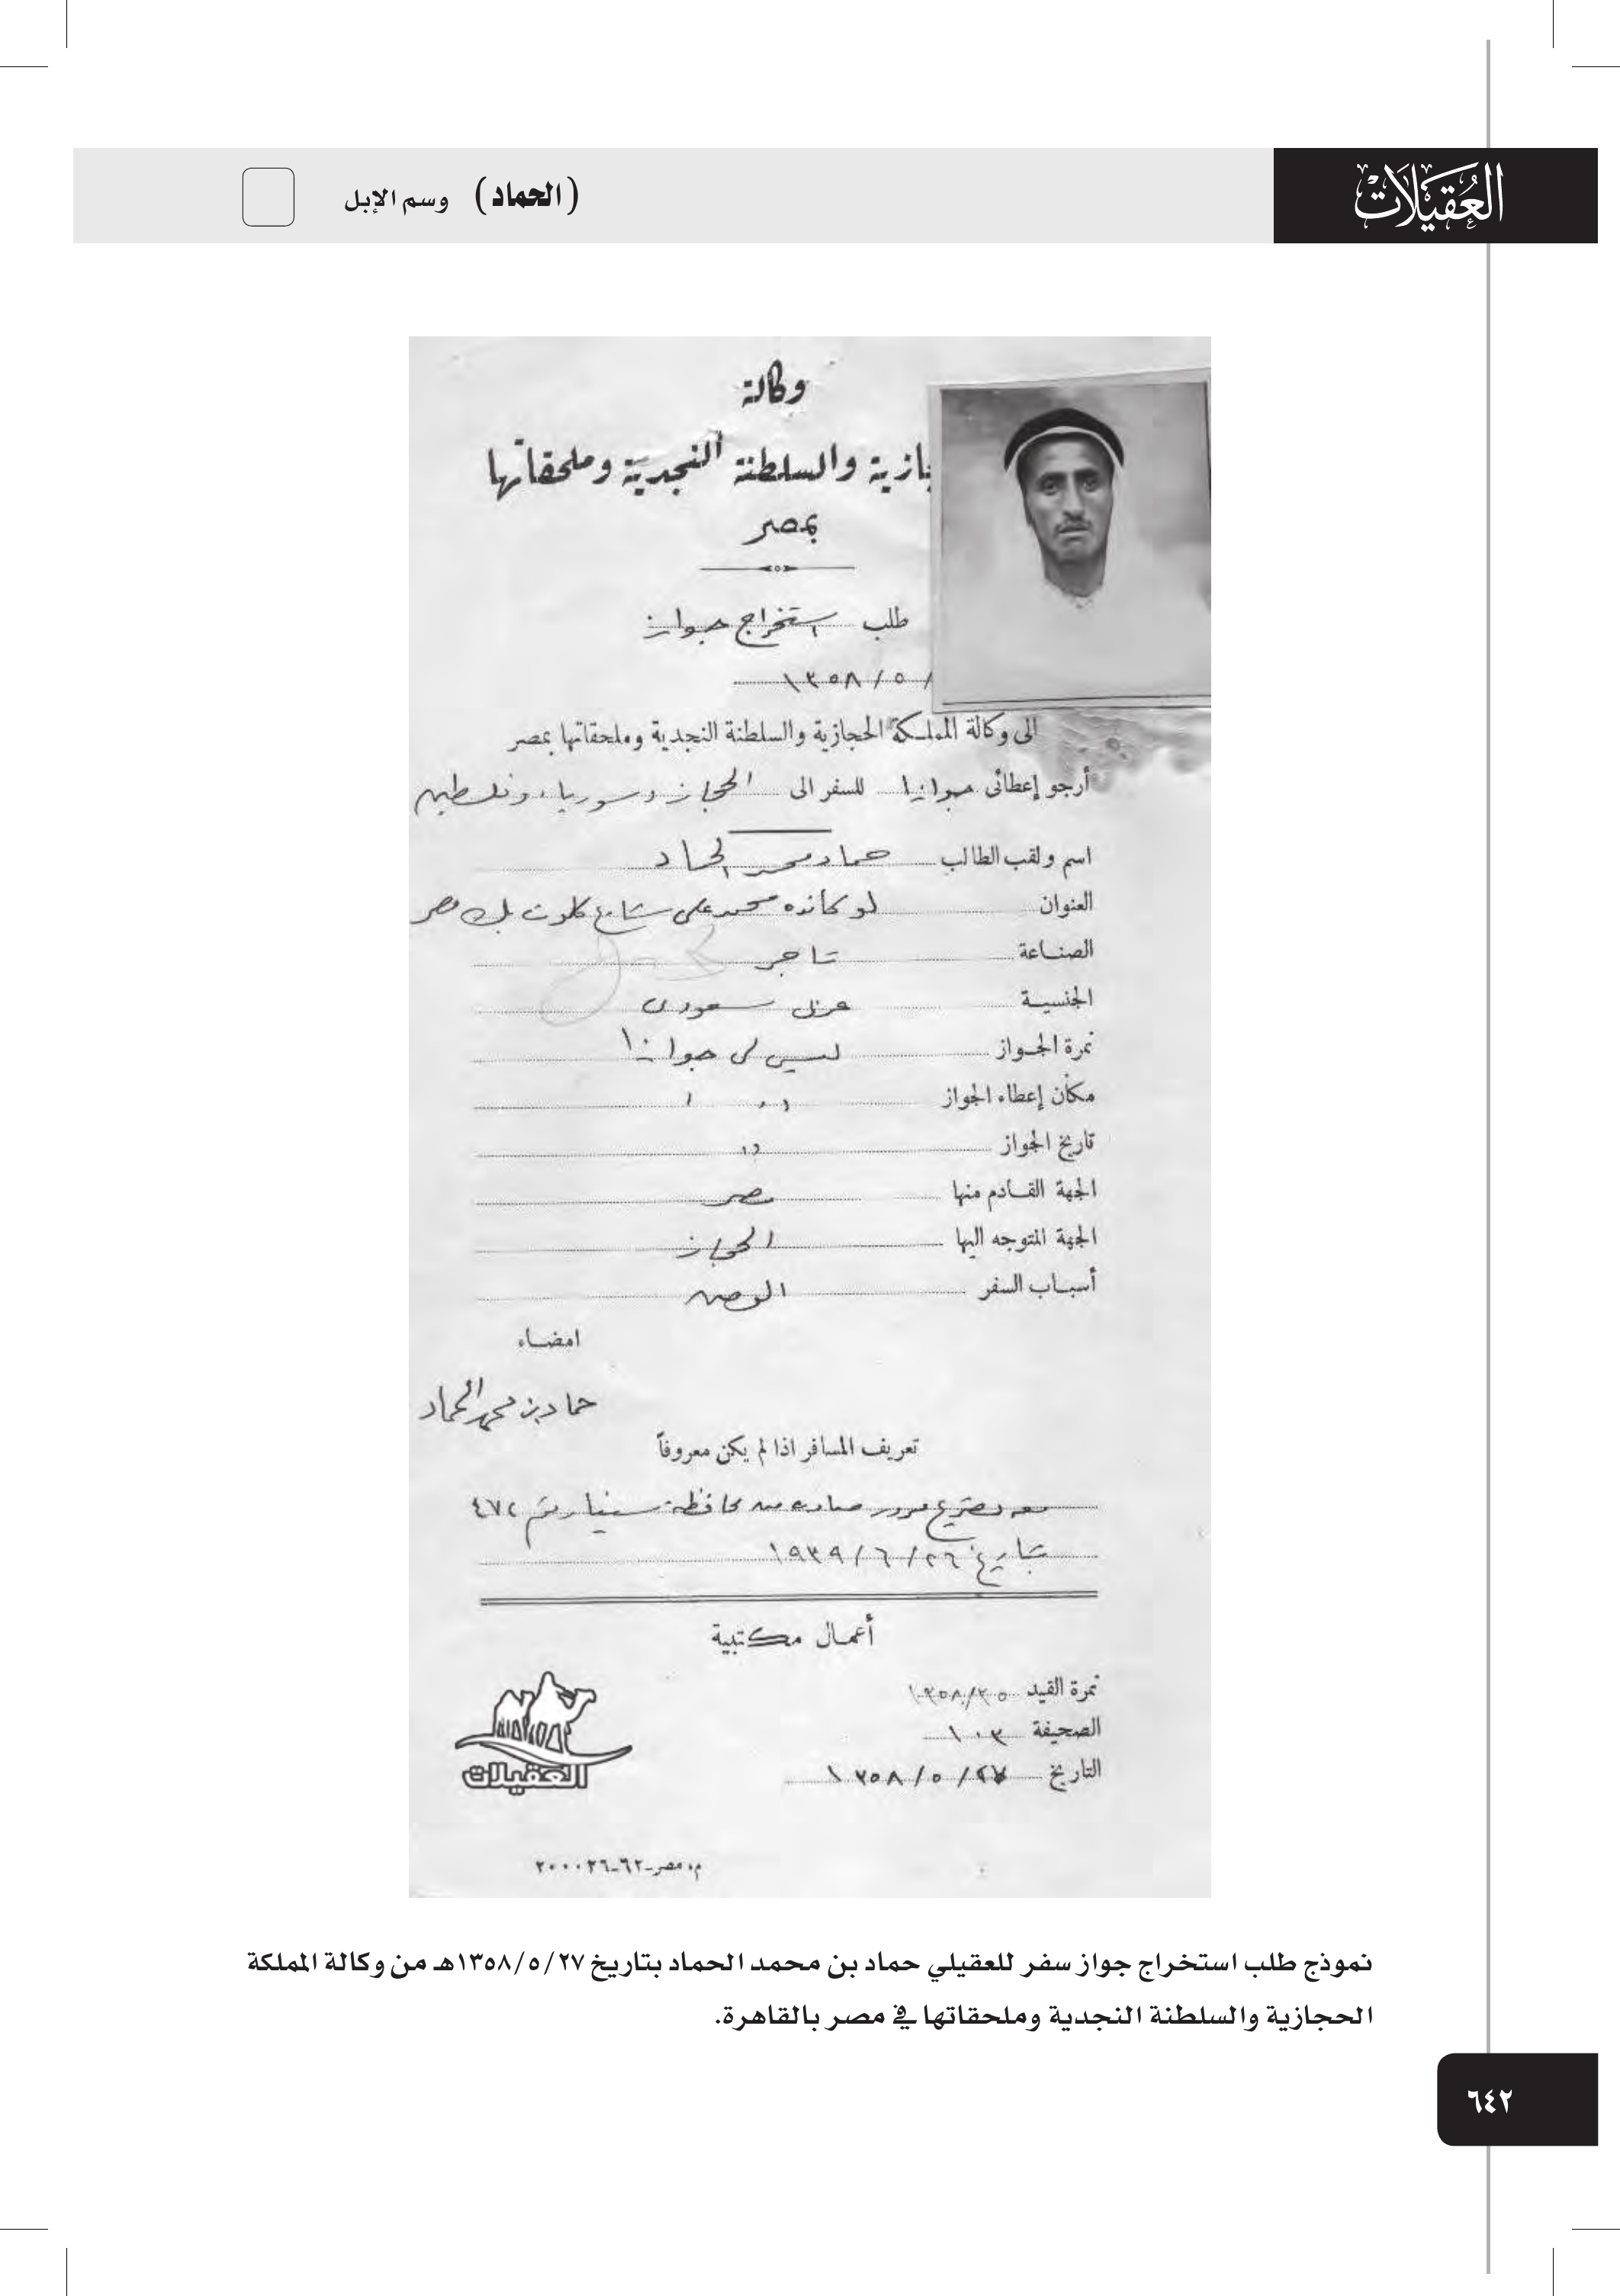 العُقَيْلَاتْ
(الحماد) وسم الإبل
وكالة
جازية والسلطنة النجدية وملحقاتها
بمصر
طلب استخراج جواز
/ ٥ / ١٣٥٨
الى وكالة المملكة الحجازية والسلطنة النجدية وملحقاتها بمصر
أرجو إعطائى جوازا للسفر الى الحجاز وسوريا وفلسطين
اسم ولقب الطالب حماد محمد الحماد
العنوان لوكانده محمد على شارع كلوت بك مصر
الصناعة تاجر
الجنسية عربى سعودى
نمرة الجواز ليس لى جوازا
مكان إعطاء الجواز
تاريخ الجواز
الجهة القادم منها مصر
الجهة المتوجه اليها الحجاز
أسباب السفر
امضاء
حماد بن محمد الحماد
تعريف المسافر اذا لم يكن معروفاً
معه تصريح مرور صادر من محافظة سينا رقم ٤٧٢
بتاريخ ٢٦ / ٦ / ١٩٣٩
أعمال مكتبية
نمرة القيد ١٣٥٨/٣٠
الصحيفة ١٠٣
التاريخ ٢٧ / ٥ / ١٣٥٨
العقيلات
م. مصر
نموذج طلب استخراج جواز سفر للعقيلي حماد بن محمد الحماد بتاريخ ٢٧/٥/١٣٥٨هـ من وكالة المملكة
الحجازية والسلطنة النجدية وملحقاتها في مصر بالقاهرة.
٦٤٢